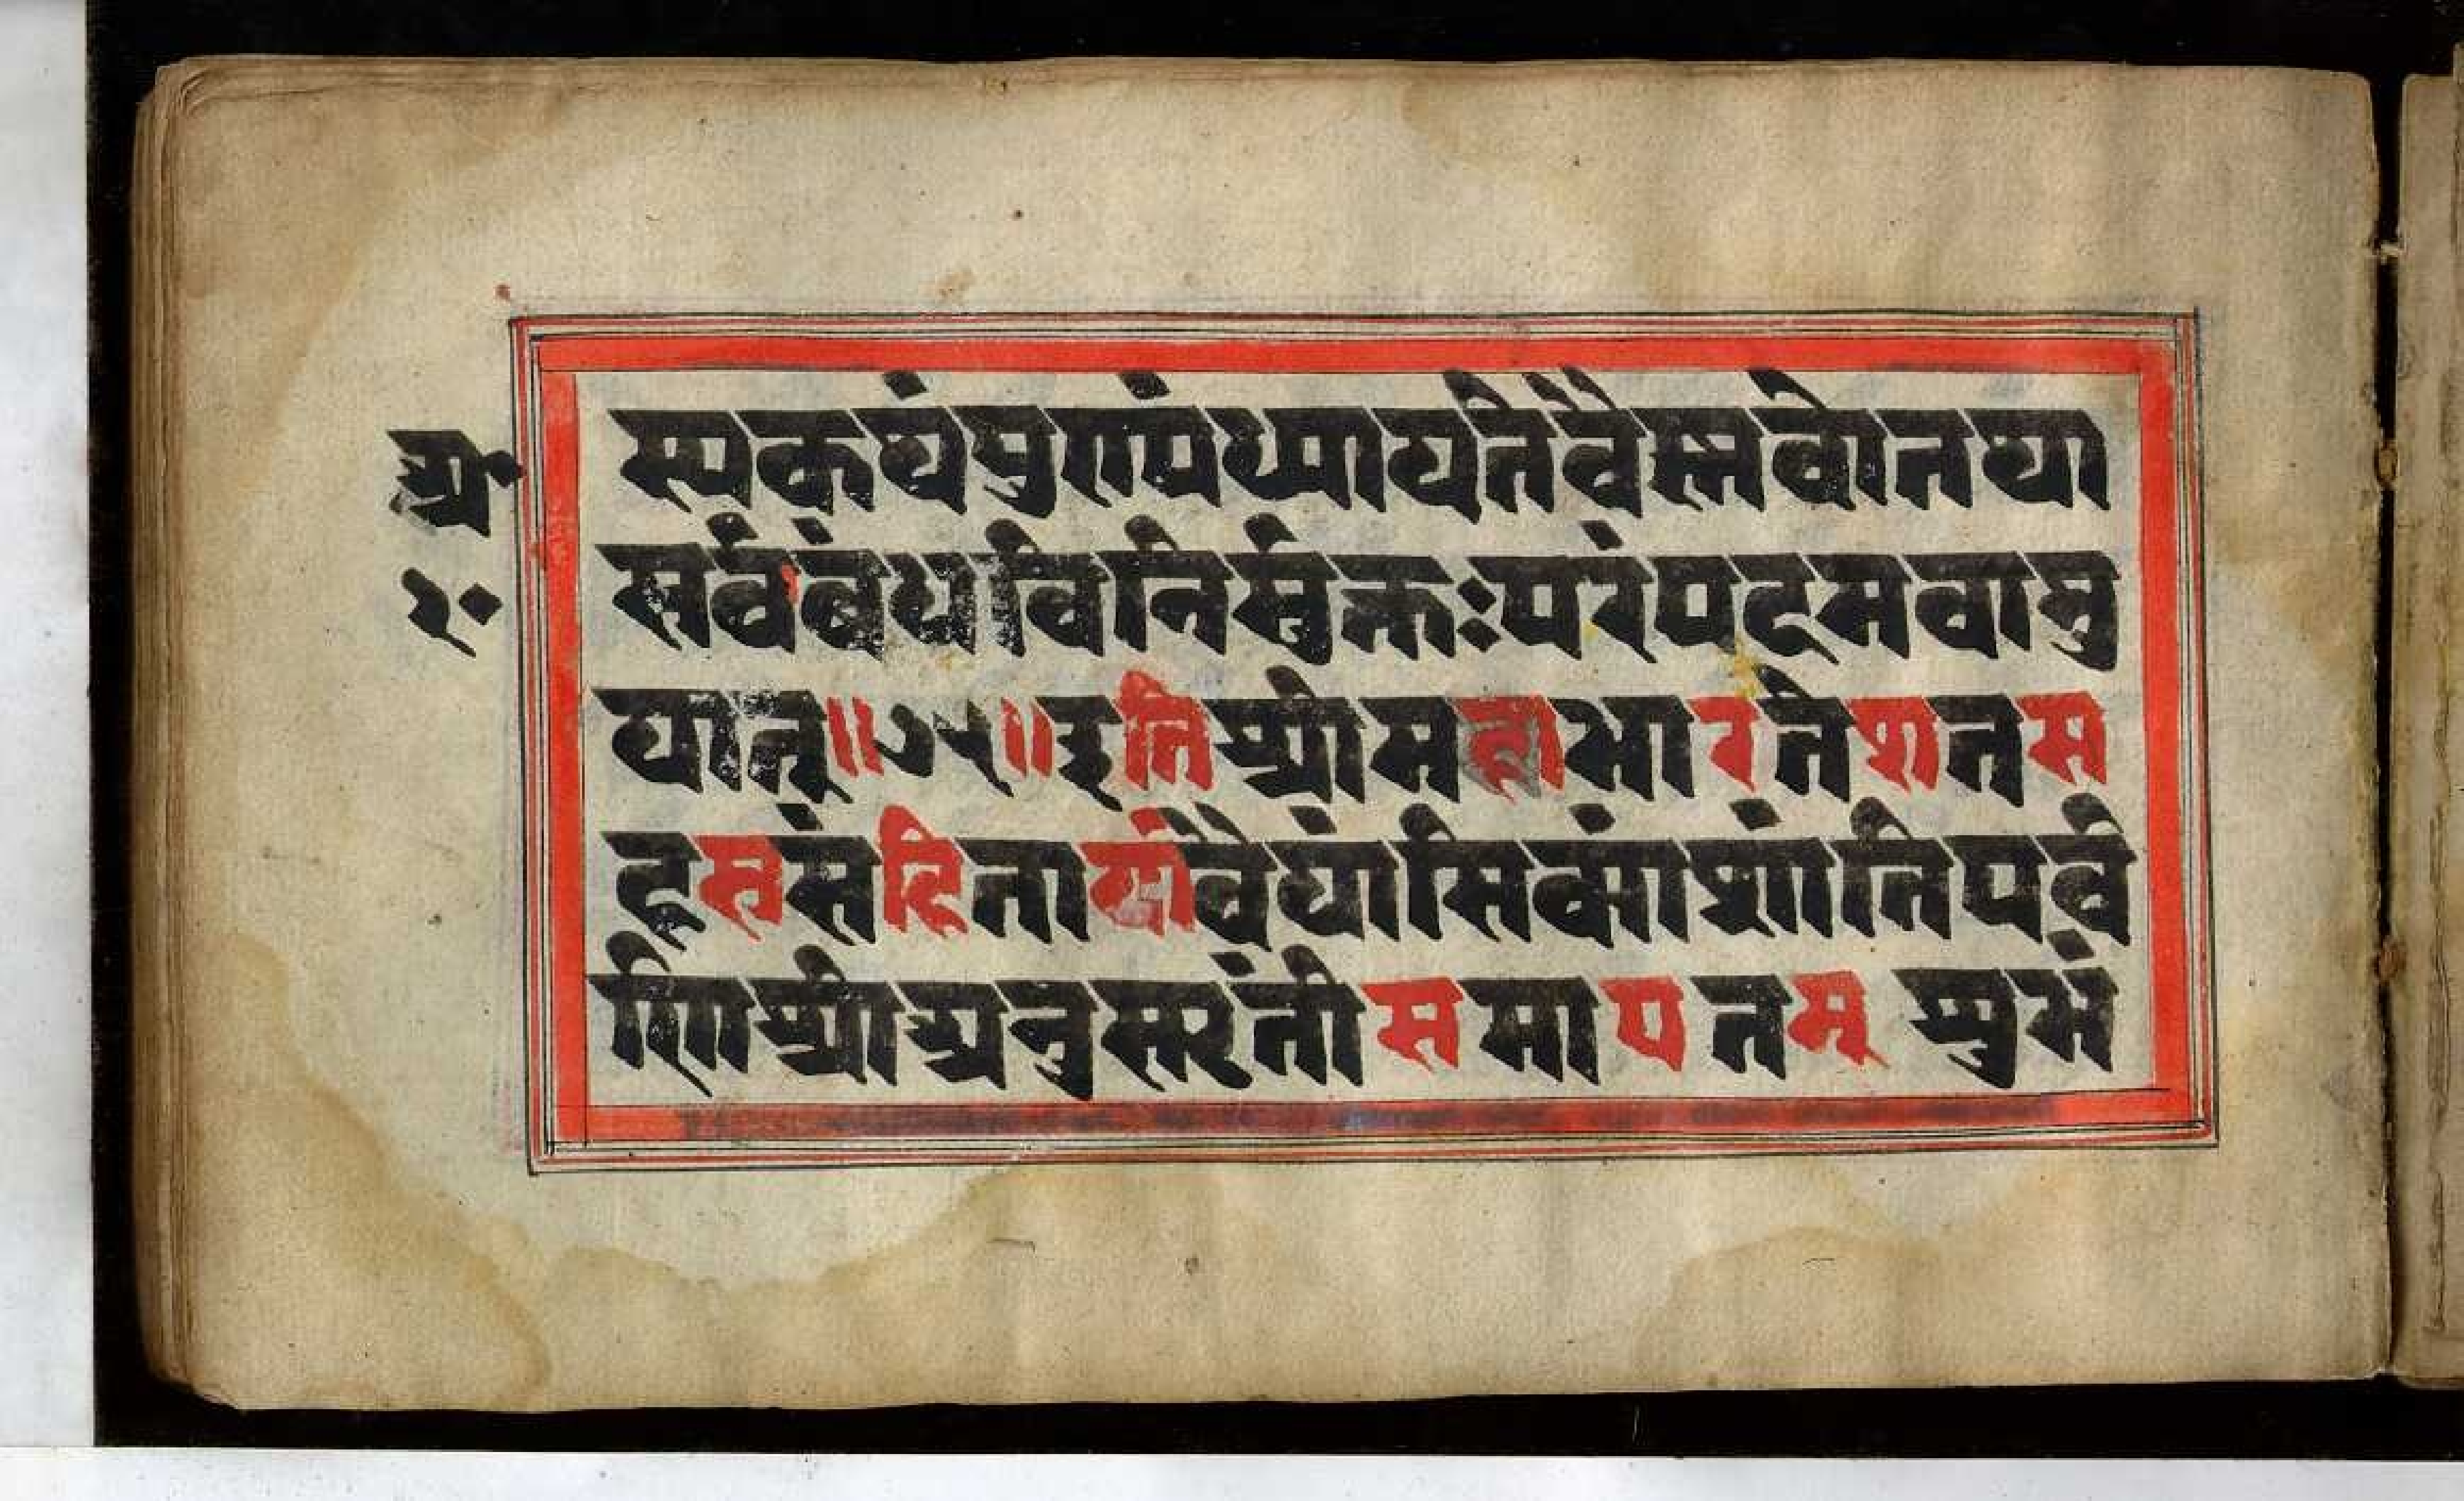 अ॰
२॰
म्यकथंपुराणंध्यायतेवैस्नवोतया
सर्वबंधविनिर्मुक्तःपरंपदमवाप्नु
यात्॥७५॥इतिश्रीमहाभारतेशतस
हस्रसंहितायांवैयासिक्यांशांतिपर्व
णिश्रीअनुस्मरंतीसमापतम्शुभं